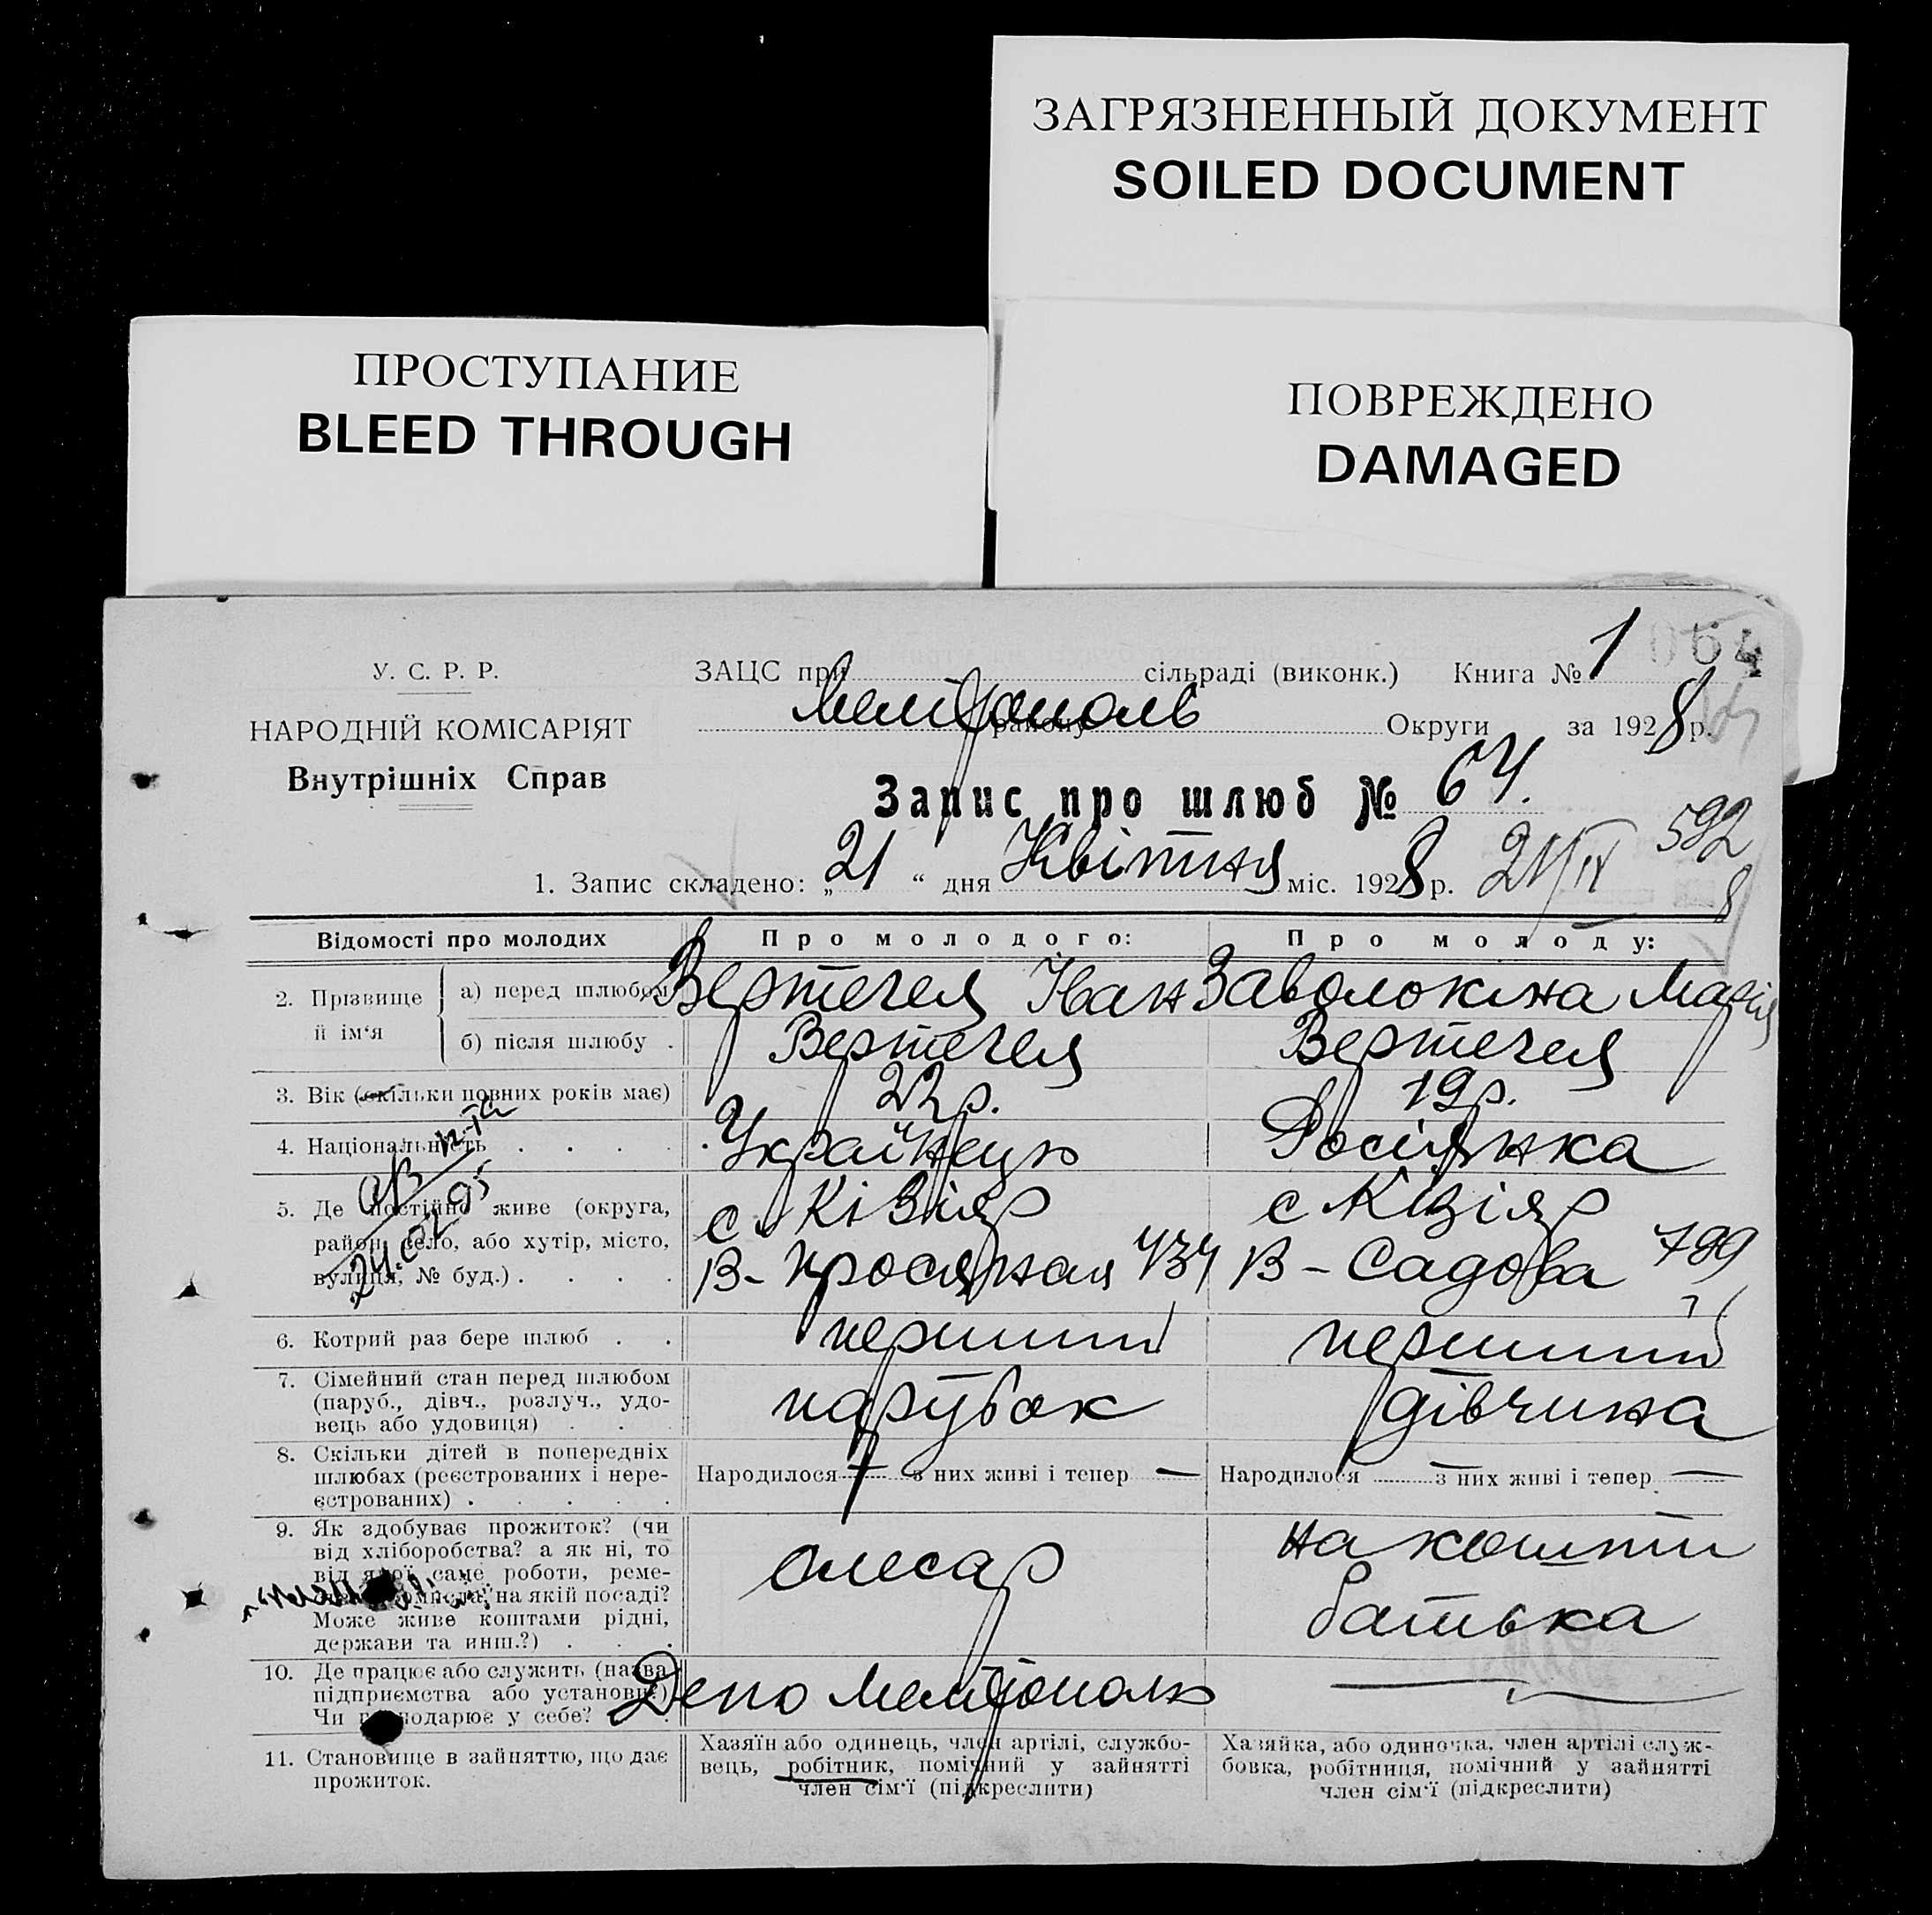 ЗАГРЯЗНЕННЫЙ ДОКУМЕНТ
SOILED DOCUMENT
ПРОСТУПАНИЕ
BLEED THROUGH
ПОВРЕЖДЕНО
DAMAGED
У. С. Р. Р.
НАРОДНІЙ КОМІСАРІЯТ
Внутрішніх Справ
ЗАЦС при сільраді (виконк.) Книга № 1 064
Мелітополь району Округи за 1928 р.
Запис про шлюб № 64.
592
1. Запис складено: „21“ дня Квітня міс. 1928 р. 21/IV 8
Відомості про молодих Про молодого: Про молоду:
2. Прізвище й ім‘я
а) перед шлюбом Вертегел Іван Заволокіна Марія
б) після шлюбу . Вертегел Вертегел
3. Вік (скільки повних років має) 22 р. 19 р.
4. Національність . . . . Українець Росіянка
5. Де постійно живе (округа, район, село, або хутір, місто, вулиця, № буд.) . . . .
с. Кізіяр с Кізіяр
В- 434 В - Садова 799
6. Котрий раз бере шлюб . . перший перший
7. Сімейний стан перед шлюбом
(паруб., дівч., розлуч., удо-
вець або удовиця) . . . парубок дівчина
8. Скільки дітей в попередніх
шлюбах (реєстрованих і нере-
єстрованих) . . . . .
Народилося — з них живі і тепер — Народилося — з них живі і тепер —
9. Як здобуває прожиток? (чи
від хліборобства? а як ні, то
від якої саме роботи, реме-
на якій посаді?
Може живе коштами рідні,
держави та инш.?) . . .
слесар на кошти
батька
10. Де працює або служить (назва
підприємства або установи?)
Чи господарює у себе? Депо Мелітополь —
11. Становище в зайняттю, що дає
прожиток.
Хазяїн або одинець, член артілі, службо-
вець, робітник, помічний у зайнятті
член сім‘ї (підкреслити)
Хазяйка, або одиночка, член артілі служ-
бовка, робітниця, помічний у зайнятті
член сім‘ї (підкреслити)